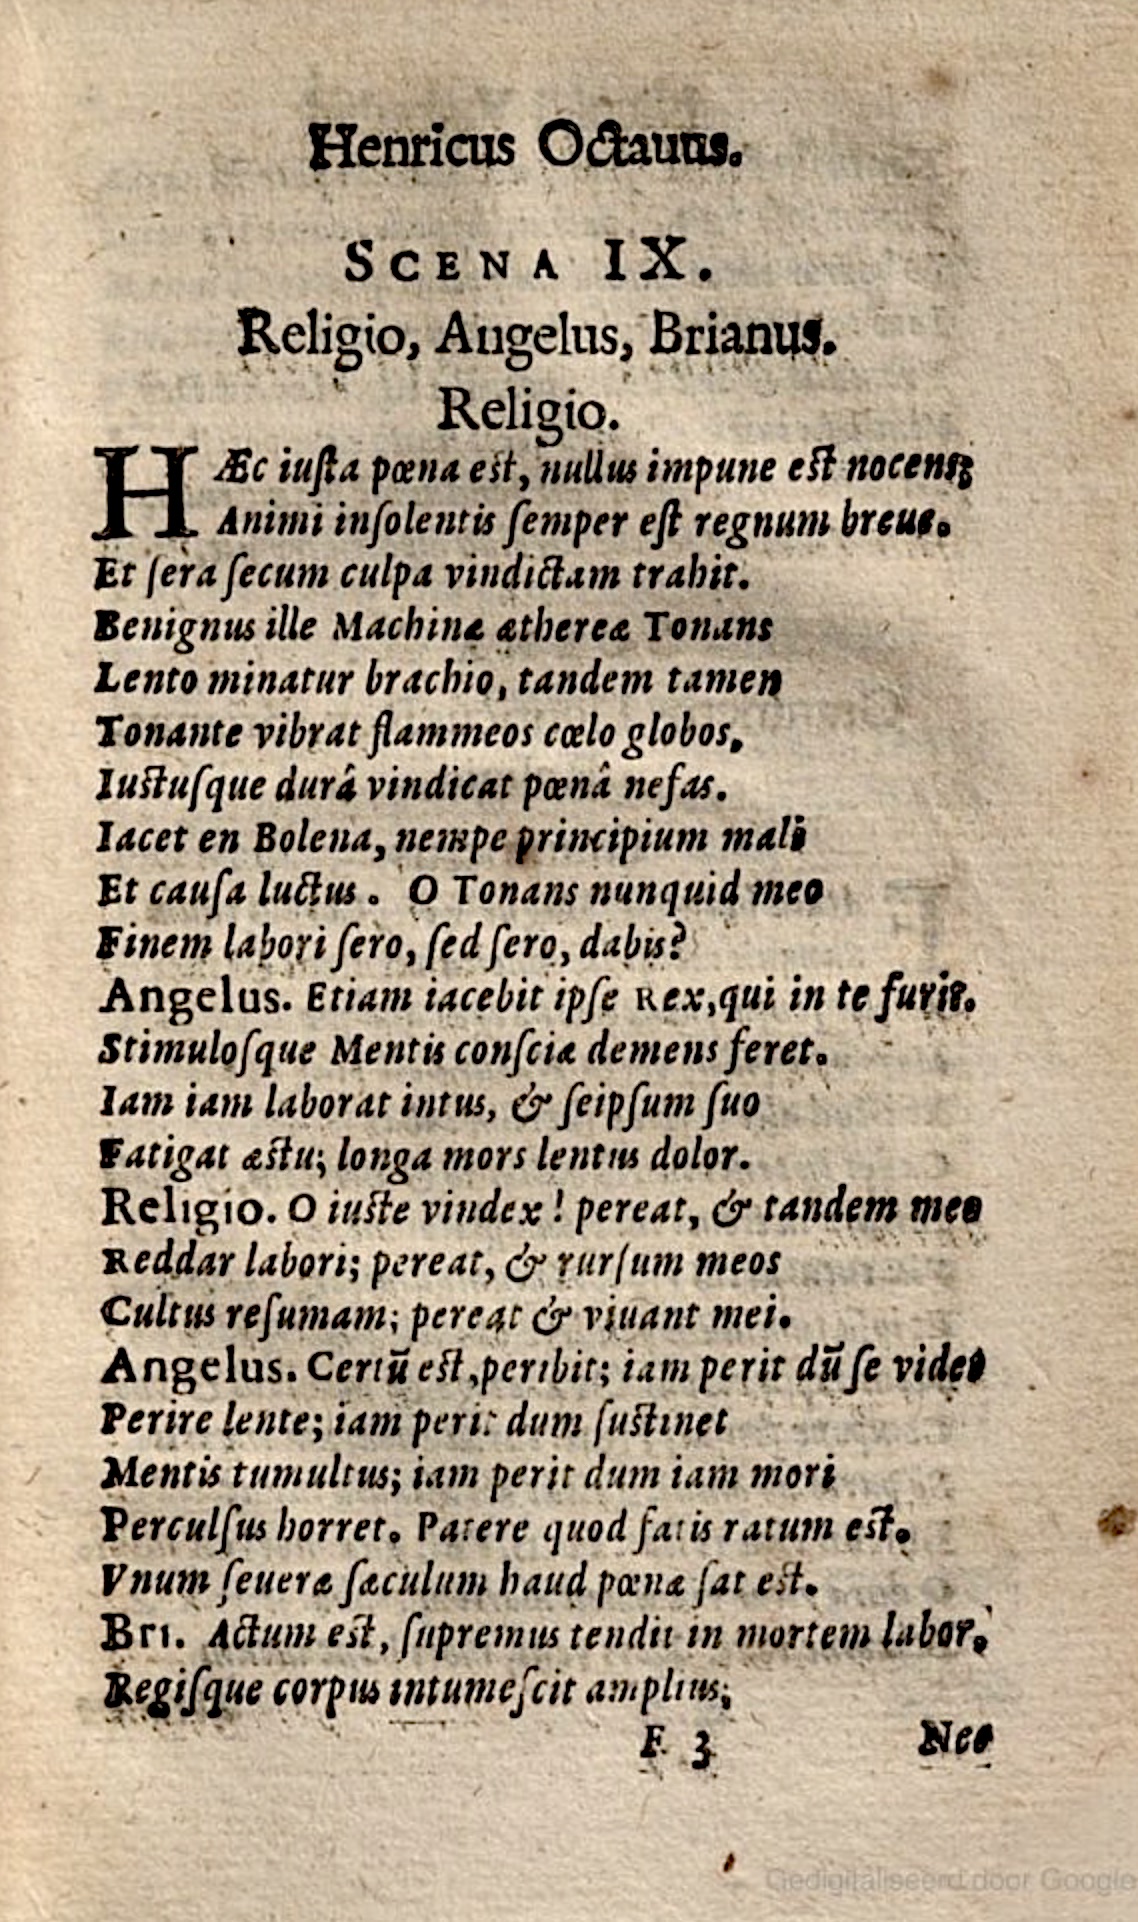 Henricus Octauus.
SCENA IX.
Religio, Angelus, Brianus.
Religio.
HÆc iuſta pœna est, nullus impune est nocens;
Animi inſolentis ſemper eſt regnum breue.
Et ſera ſecum culpa vindictam trahit.
Benignus ille Machinæ æthereæ Tonans
Lento minatur brachio, tandem tamen
Tonante vibrat flammeos cœlo globos,
Iustuſque durâ vindicat pœnâ nefas.
Iacet en Bolena, nempe principium mali
Et cauſa luctus. O Tonans nunquid meo
Finem labori ſero, ſed ſero, dabis?
Angelus. Etiam iacebit ipſe Rex, qui in te furit.
Stimuloſque Mentis conſciæ demens feret.
Iam iam laborat intus, & ſeipſum ſuo
Fatigat æstu; longa mors lentus dolor.
Religio. O iuste vindex! pereat, & tandem meo
Reddar labori; pereat, & rurſum meos
Cultus reſumam; pereat & viuant mei.
Angelus. Certũ est, peribit; iam perit dũ ſe videt
Perire lente; iam perit dum ſustinet
Mentis tumultus; iam perit dum iam mori
Perculſus horret. Patere quod fatis ratum est.
Vnum ſeueræ ſæculum haud pœnæ ſat est.
Bri. Actum est, ſupremus tendit in mortem labor,
Regiſque corpus intumeſcit amplius;
F 3 Nec
Gedigitaliseerd door Google